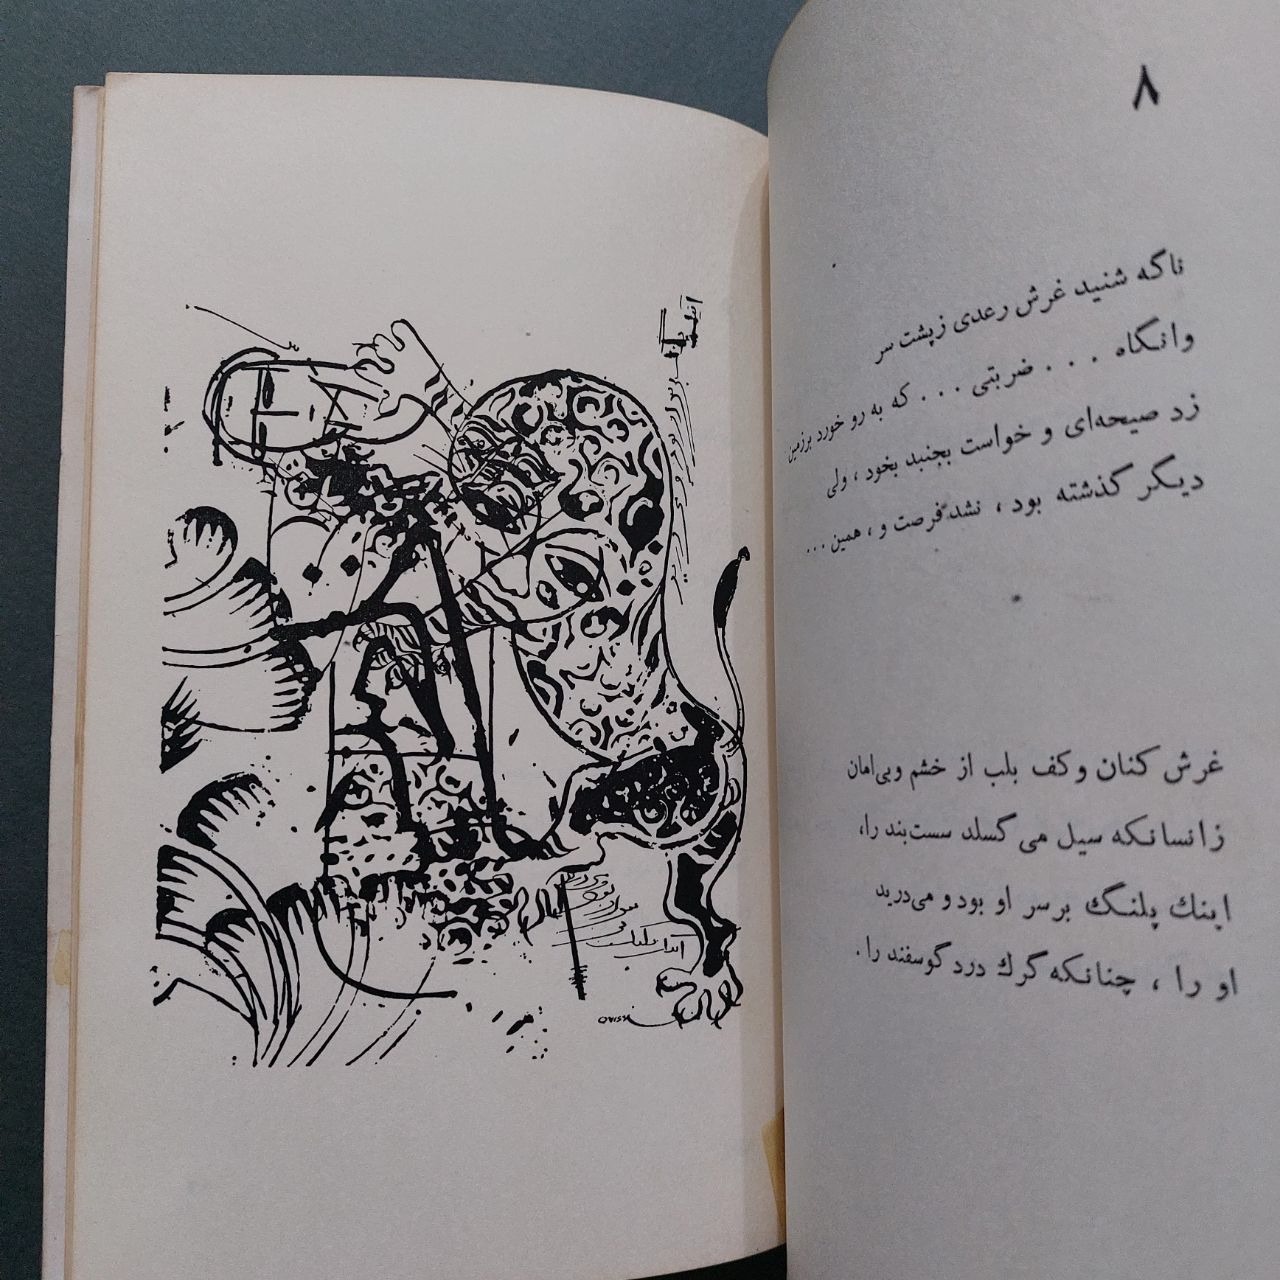 ۸
ناگه شنید غرش رعدی زپشت سر
وانگاه . . . ضربتی . . . که به رو خورد برزمین
زد صیحه‌ای و خواست بجنبد بخود ، ولی
دیگر گذشته بود ، نشد فرصت و ، همین ...
غرش کنان وکف بلب از خشم وبی‌امان
زانسانکه سیل می‌گسلد سست‌بند را،
اینك پلنگ برسر او بود و می‌درید
او را ، چنانکه گرك درد گوسفند را .